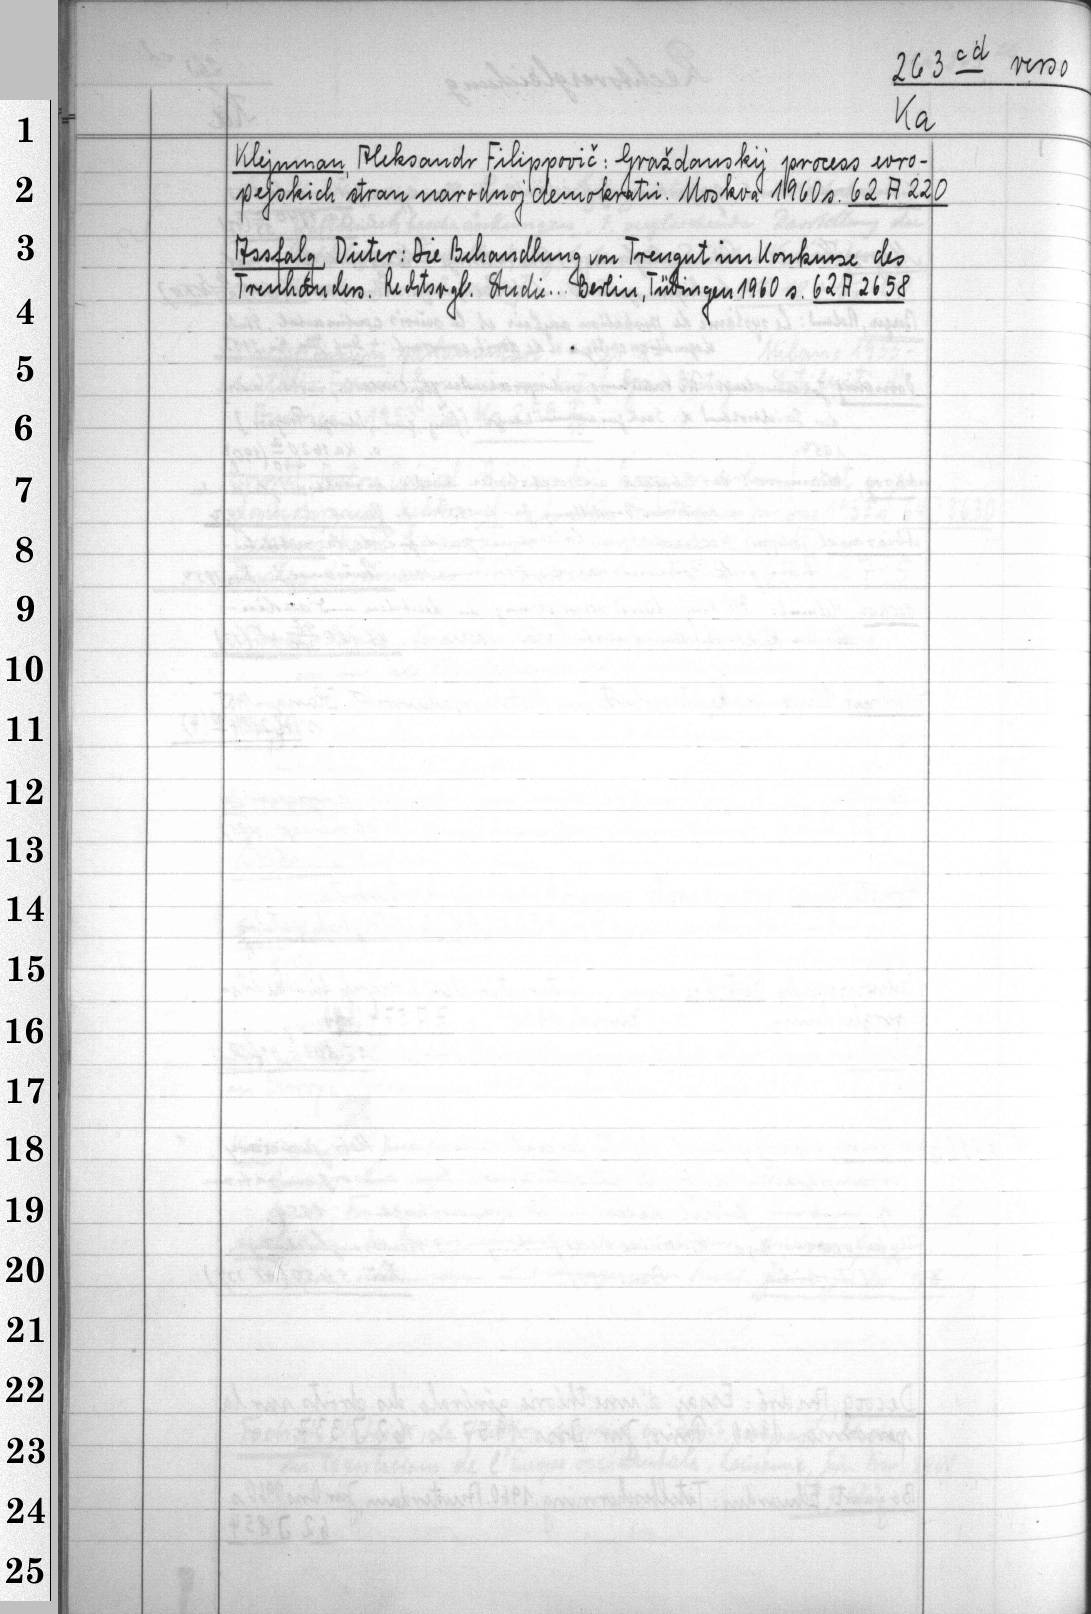 263 cd verso
Ka
Klejnman, Aleksandr Filippovič: Graždanskij process evro-
pejskich stran narodnoj demokratii. Moskva 1960 s. 62 A 220
Assfalg, Dieter: Die Behandlung von Treugut im Konkurse des
Treuhänders. Rechtsvgl. Studie... Berlin, Tübingen 1960 s. 62 A 2658
1
2
3
4
5
6
7
8
9
10
11
12
13
14
15
16
17
18
19
20
21
22
23
24
25